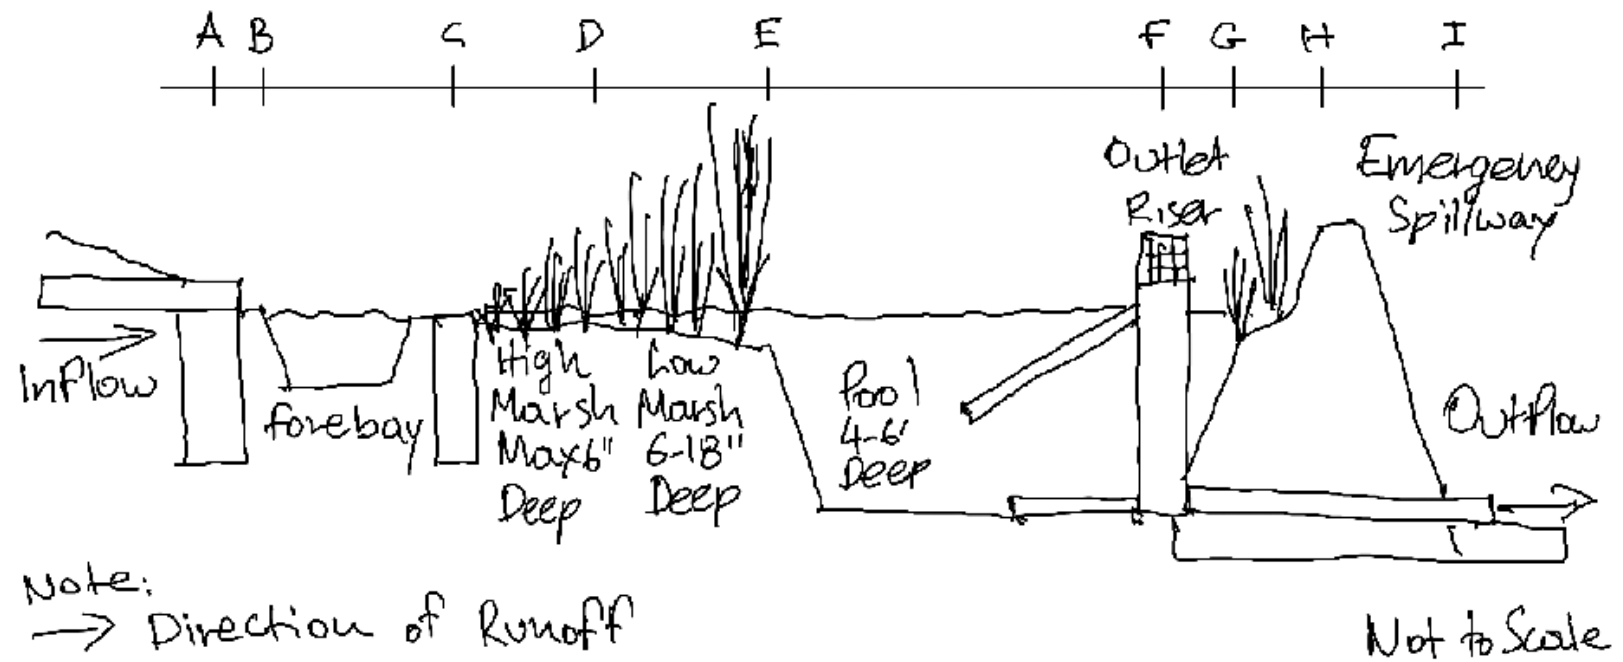 A B C D E F G H I
Outlet
Riser
Emergency
Spillway
Inflow
forebay
High
Marsh
Max6"
Deep
Low
Marsh
6-18"
Deep
Pool
4-6'
Deep
Outflow
Note:
→ Direction of Runoff
Not to Scale